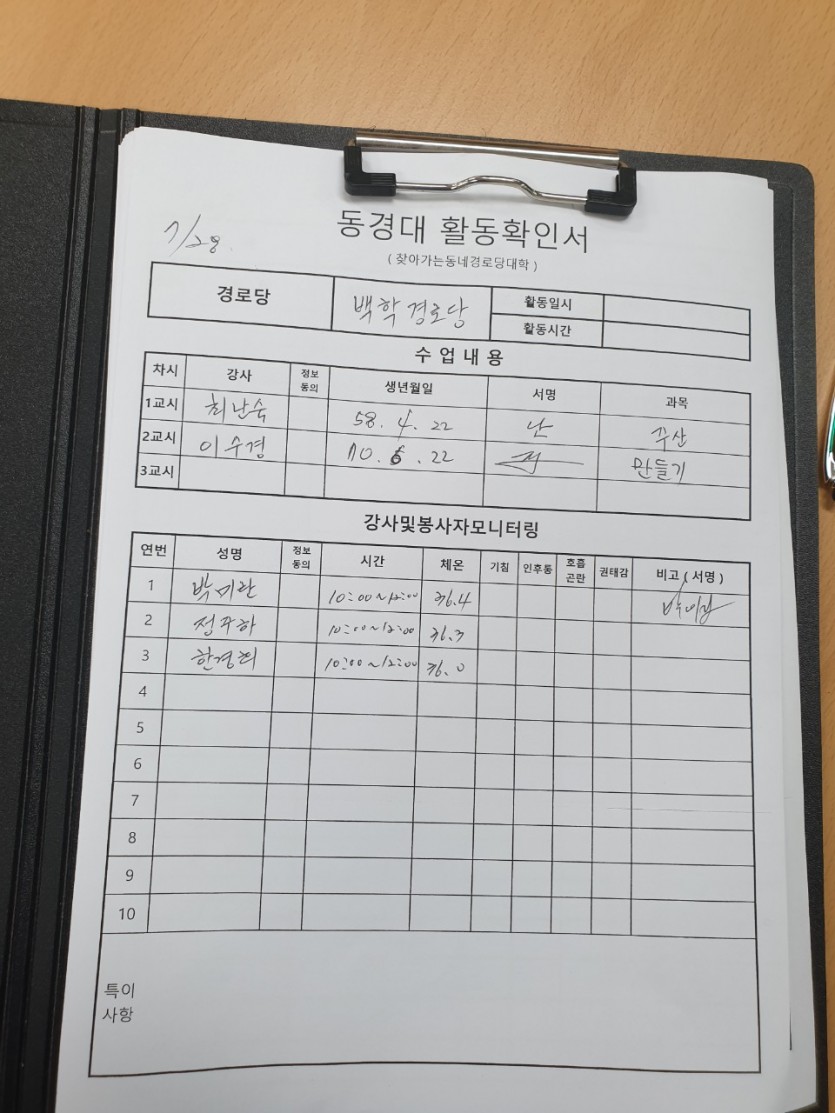 7/28.
동경대 활동확인서
( 찾아가는동네경로당대학 )
경로당 백학경로당 활동일시
활동시간
수 업 내 용
차시 강사 정보동의 생년월일 서명 과목
1교시 최난숙 58. 4. 22 난 주산
2교시 이수경 70. 6. 22 만들기
3교시
강사및봉사자모니터링
연번 성명 정보동의 시간 체온 기침 인후통 호흡곤란 권태감 비고 ( 서명 )
1 박미란 10:00~12:00 36.4 박미란
2 10:00~12:00 36.3
3 한경희 10:00~12:00 36.0
4
5
6
7
8
9
10
특이
사항